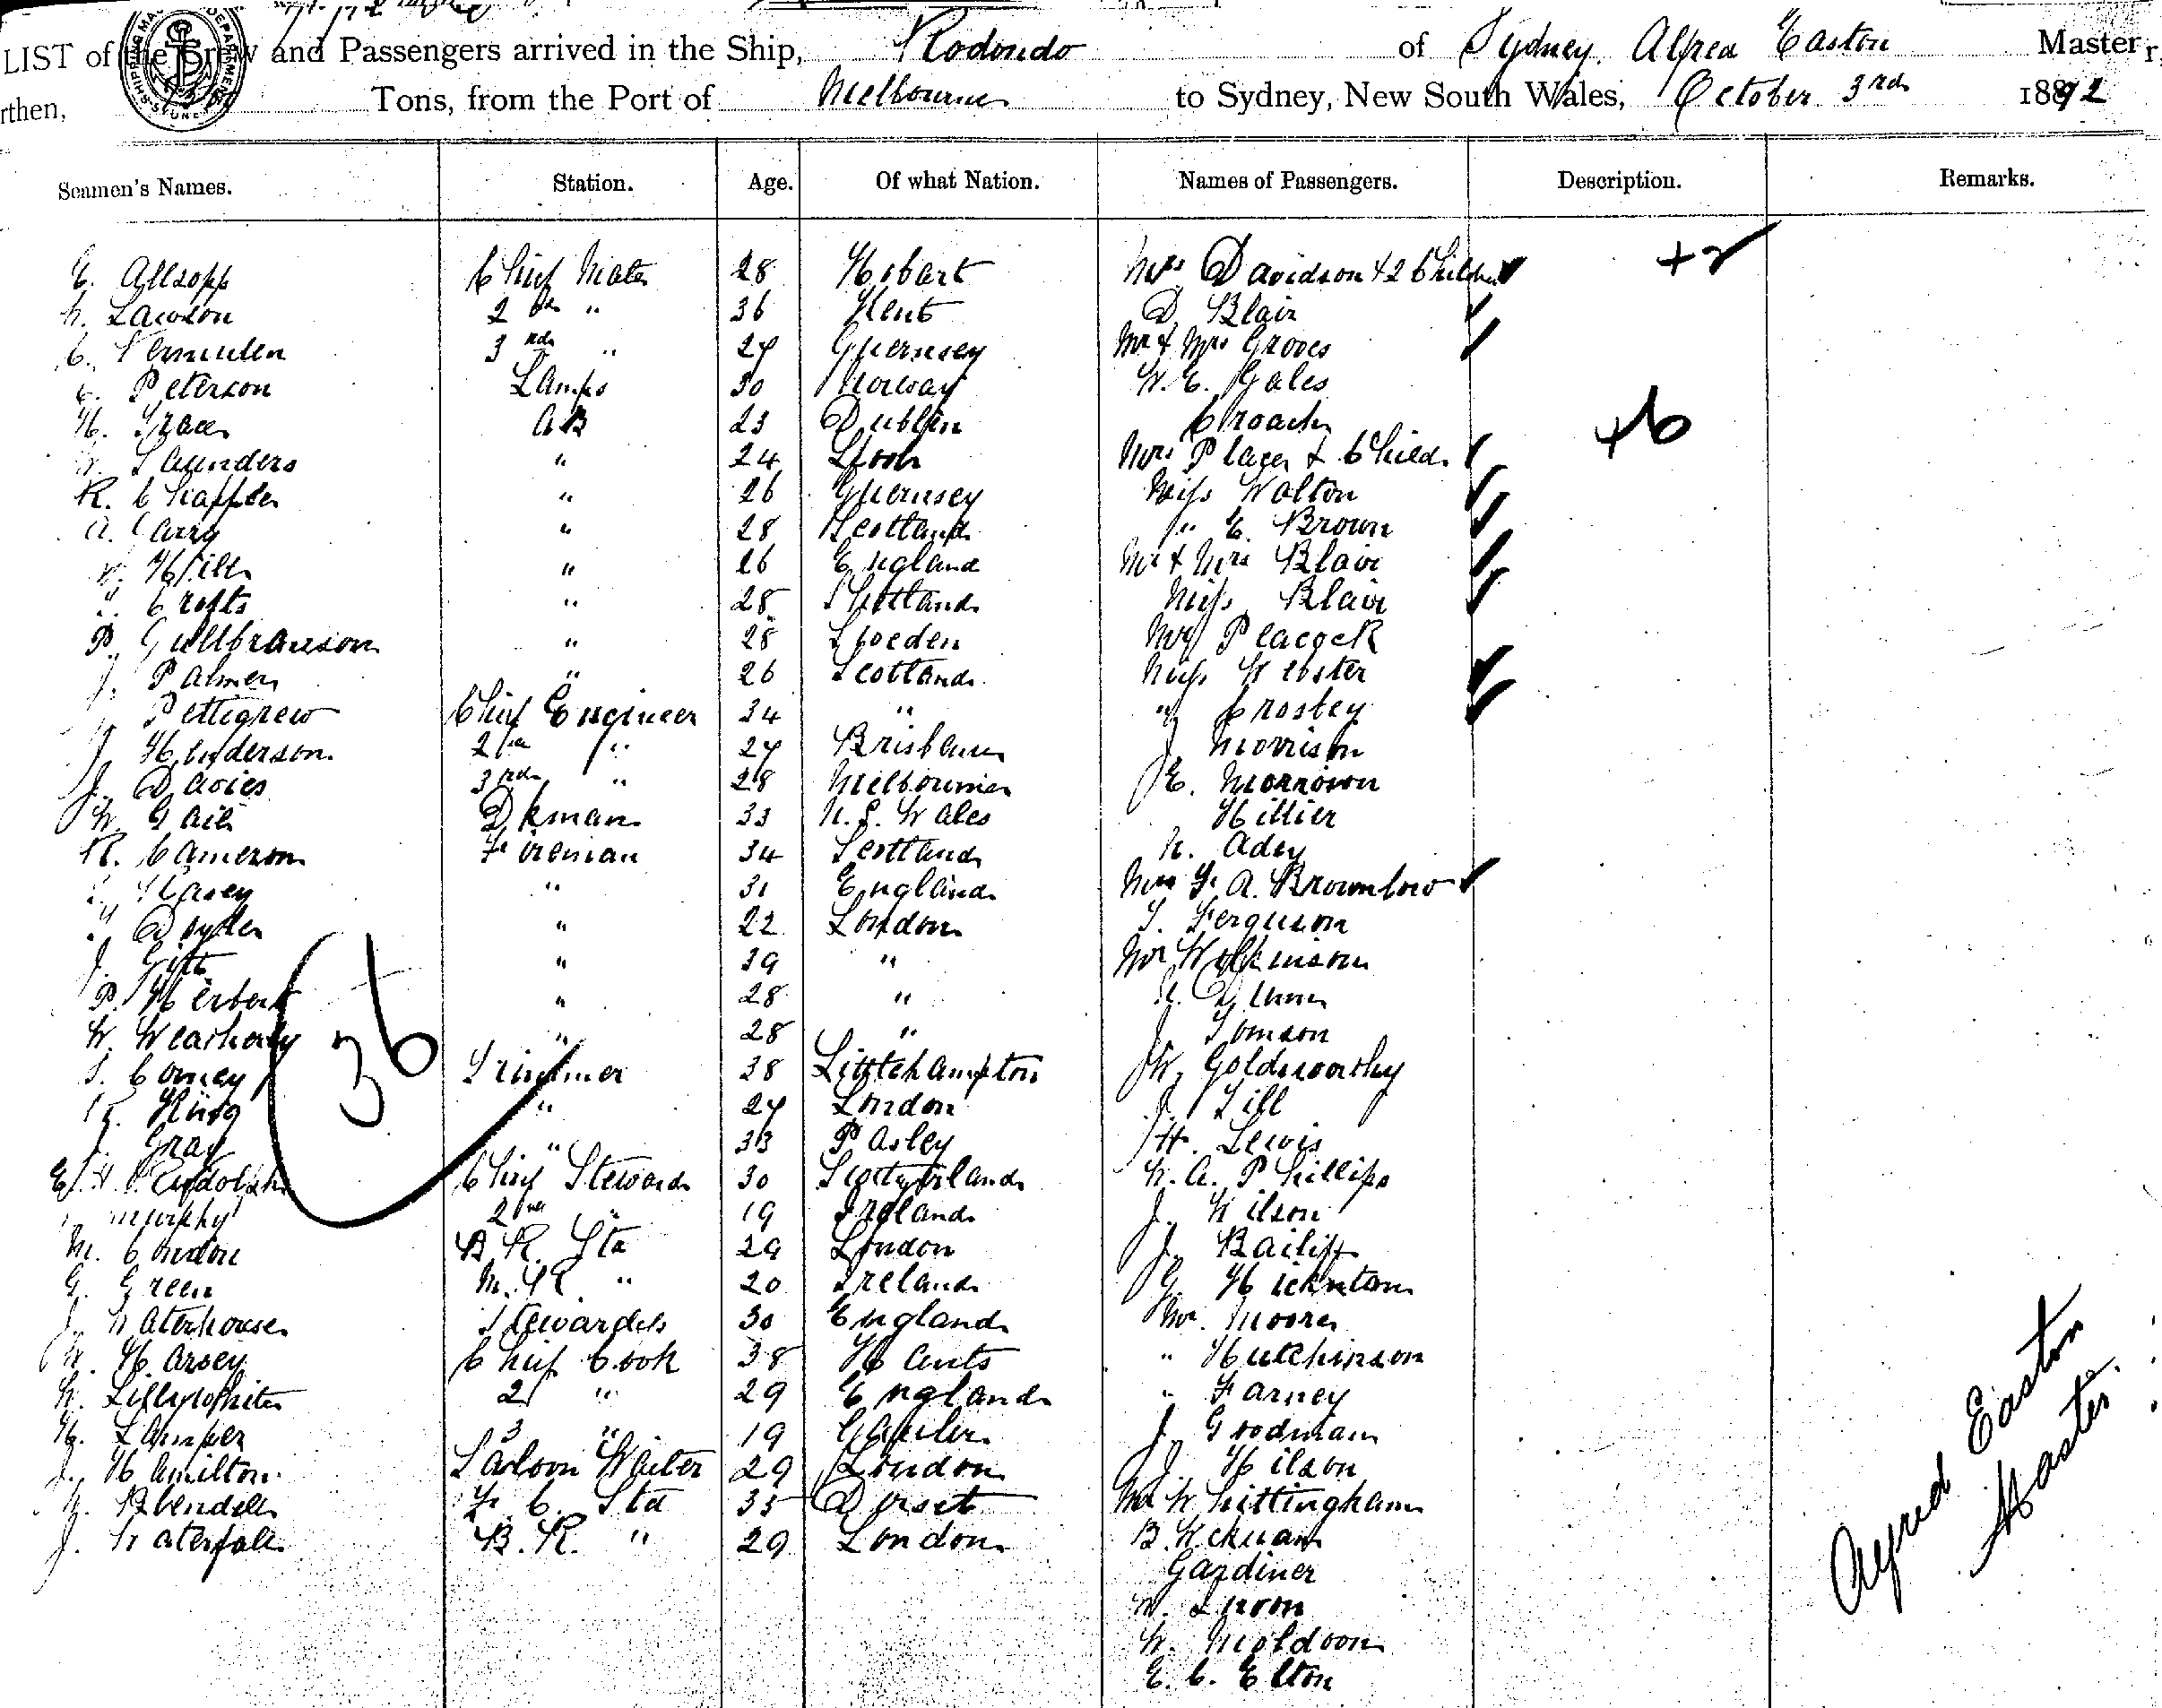 LIST of the Crew and Passengers arrived in the Ship, Rodondo of Sydney, Alfred Easton Master,
rthen, Tons, from the Port of Melbourne to Sydney, New South Wales, October 3rd 1892
Seamen's Names. Station. Age. Of what Nation. Names of Passengers. Description. Remarks.
E. Allsopp Chief Mate 28 Hobart Mrs Davidson + 2 Children +2
Lawson 2nd " 36 Kent D. Blair
3rd " 27 Guernsey Mr & Mrs Groves
Peterson Lamps 30 Norway W. E. Gales
H. Grace AB 23 Dublin Croach
Saunders " 24 Mrs Player & Child +6
R. " 26 Guernsey Miss Walton
A. Carry " 28 Scotland " E. Brown
Hill " 26 England Mr & Mrs Blair
Crofts " 28 Shetland Miss Blair
P. Gullbranson " 28 Sweden Peacock
J. Palmer " 26 Scotland Miss Webster
Pettigrew Chief Engineer 34 " " Crosbey
J. Henderson 2nd " 27 Brisbane J. Morrison
J. Davies 3rd " 28 Melbourne E. Morrison
W. Gail Dkman 33 N. S. Wales Hillier
R. Cameron Fireman 34 Scotland Adey
" 31 England F. A. Brownlow
" 22 London Ferguson
J. " 39 " Mr Wilkinson
P. Herbert " 28 " Dunn
W. " 28 " J. Tomson
36
Comey Trimmer 38 Littlehampton W. Goldsworthy
King " 27 London J. Till
J. Gray " 33 Pasley H. Lewis
Rudolph Chief Steward 30 Switzerland W. A. Phillips
Murphy 2nd " 19 Ireland J. Wilson
M. Condon B R. Std 29 London J. Bailiff
G. Green M. R. " 20 Ireland G.
J. Waterhouse Stewardess 30 England Mr. Moore
W. Harvey Chief Cook 38 Hants " Hutchinson
W. Lillywhite 2 " 29 England " Farney
H. Lamper 3 " 19 Gawler J. Goodman
J. Hamilton Saloon Waiter 29 London J. Wilson
F. C. Std 35 Dorset Mr Whittingham
J. Waterfall B. R. " 29 London B.
Gardiner
W. Moldoon
E. C. Elton
Alfred Easton
Master